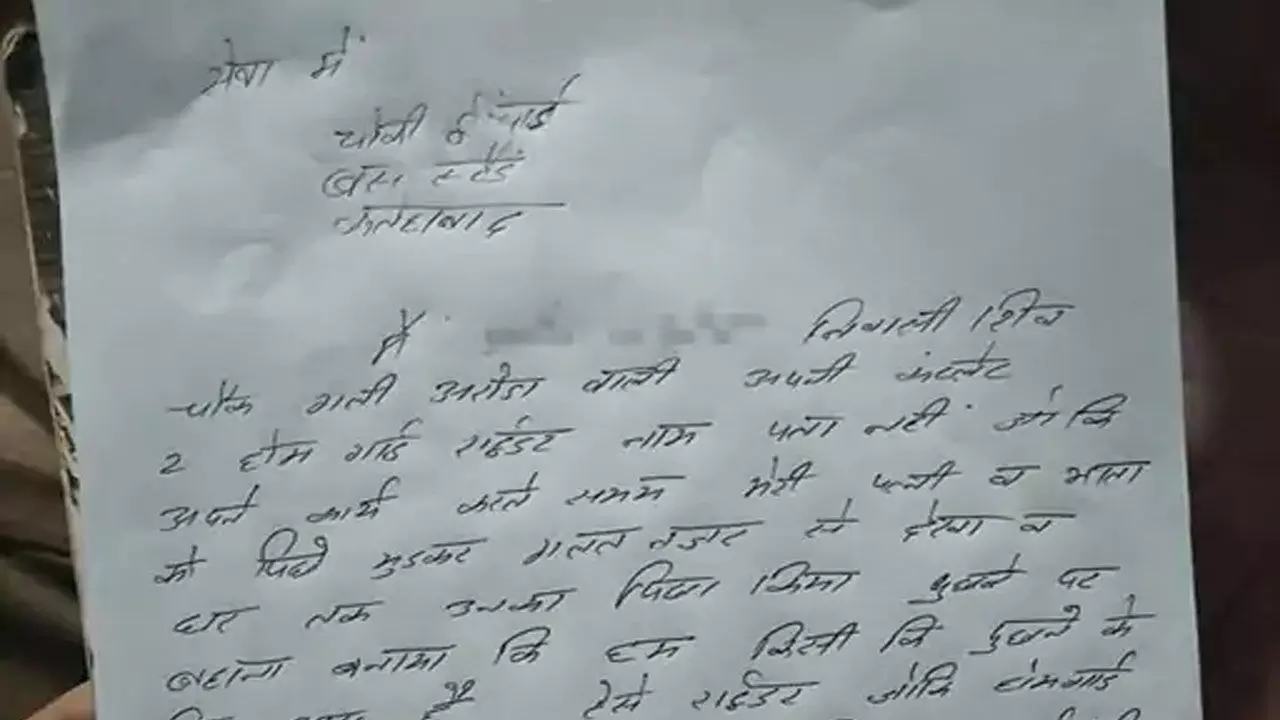 सेवा में
चौकी ईन्चार्ज
बस स्टैंड
फतेहाबाद
मैं निवासी शिव
चौक गली अरोडा वाली अपनी कंप्लेट
2 होम गार्ड राईडर नाम पता नहीं जो कि
अपने कार्य करते समय मेरी पत्नी व माता
को पिछे मुडकर गलत नजर से देखा व
घर तक उनका पिछा किया पुछने पर
बहाना बनाया कि हम किसी कि पुछने के
है ऐसे राईडर जोकि होमगार्ड